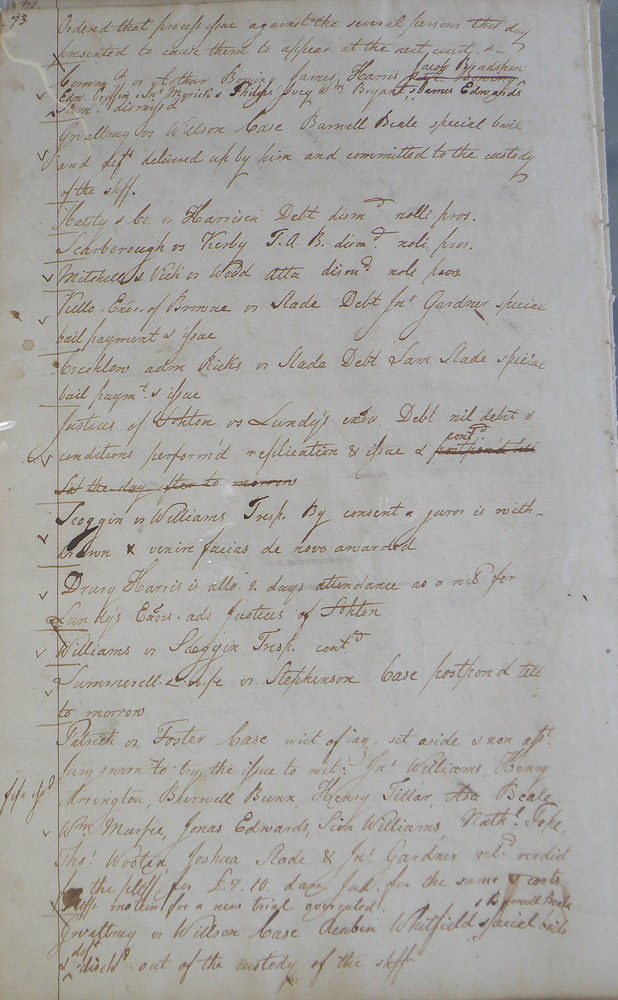 73
Ordered that process issue against the several persons this day
presented to cause them to appear at the next court. &
Jacob Bradshaw
Comm^th vs Arthur Bowing James Harris
Edw^d Griffin & Jn^o Myrick & Philips Jucy W^m Bryant & James Edwards
Same dismis'd
Gwaltney vs Willson Case Burwell Beale special bail
and def^t delivered up by him and committed to the custody
of the shff.
Hasty & Co. vs Harrison Debt dism^d nolle pros.
Scarborough vs Kerby T. A. B. dism^d nole pros.
Mitchell & Vick vs Wood atta dism^d nole pros
Kello Exor. of Browne vs Slade Debt Jn^o Gardner special
bail payment & issue
adm Ricks vs Slade Debt Sam Slade special
bail paym^t & issue
Justices of Sohton vs Lundy's exōrs. Debt nil debet &
cont^d
conditions perform'd replication & issue & postpon'd till
Sat the day after to morrow
Scoggin vs Williams Tresp. By consent a juror is with-
drawn & venire facias de novo awarded
Drury Harris is allo. 2 days attendance as a wit^s for
Lundy's Exors. ads Justices of Sohton
Williams vs Scoggin Tresp. cont^d
Summerell & wife vs Stephenson Case postpon'd till
to morrow
Patrick vs Foster Case writ of inq. set aside & non ass^t.
Jury sworn to try the issue to wit: Jn^o Williams, Henry
Arrington, Burwell Bunn, Henry Tillar, Asa Beale,
W^m Marfre, Jonas Edwards, Sion Williams, Nath^l Pope,
Tho^s Wooten Joshua Slade & Jn^o Gardner ret^d verdict
for the pltff for £7. 10. dam Jud. for the same & costs
motion for a new trial overruled.
& Burwell Beale
Gwaltney vs Willson Case Reuben Whitfield special bail
def^t
& disch^d out of the custody of the shff